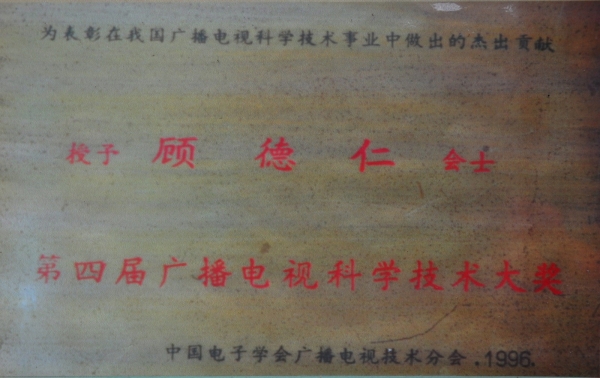 为表彰在我国广播电视科学技术事业中做出的杰出贡献
授予 顾德仁 会士
第四届广播电视科学技术大奖
中国电子学会广播电视技术分会.1996.